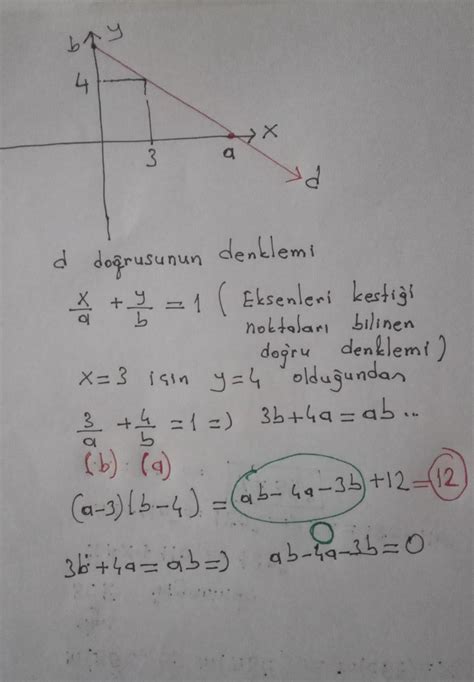 b y
4
3 a x
d
d doğrusunun denklemi
x/a + y/b = 1 ( Eksenleri kestiği
noktaları bilinen
doğru denklemi)
x=3 için y=4 olduğundan
3/a + 4/b = 1 =) 3b+4a=ab...
(b) (a)
(a-3)(b-4) = ab-4a-3b+12=12
0
3b+4a=ab=) ab-4a-3b=0